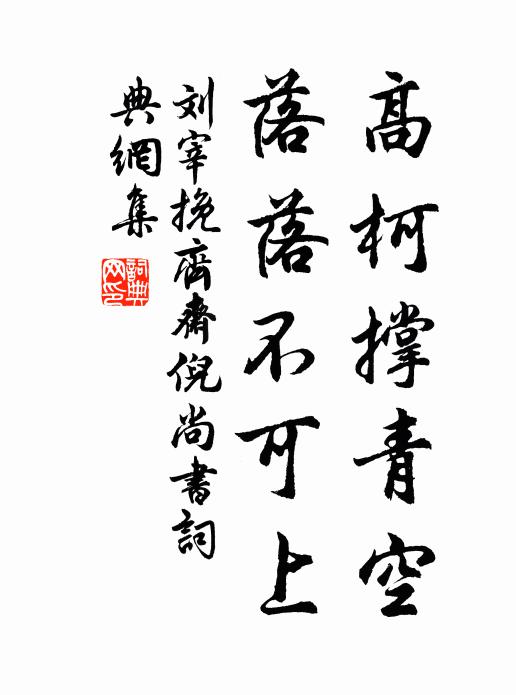 高柯撑青空
落落不可上
刘宰挽齊齋倪尚書詞
典網集
詞典
网印